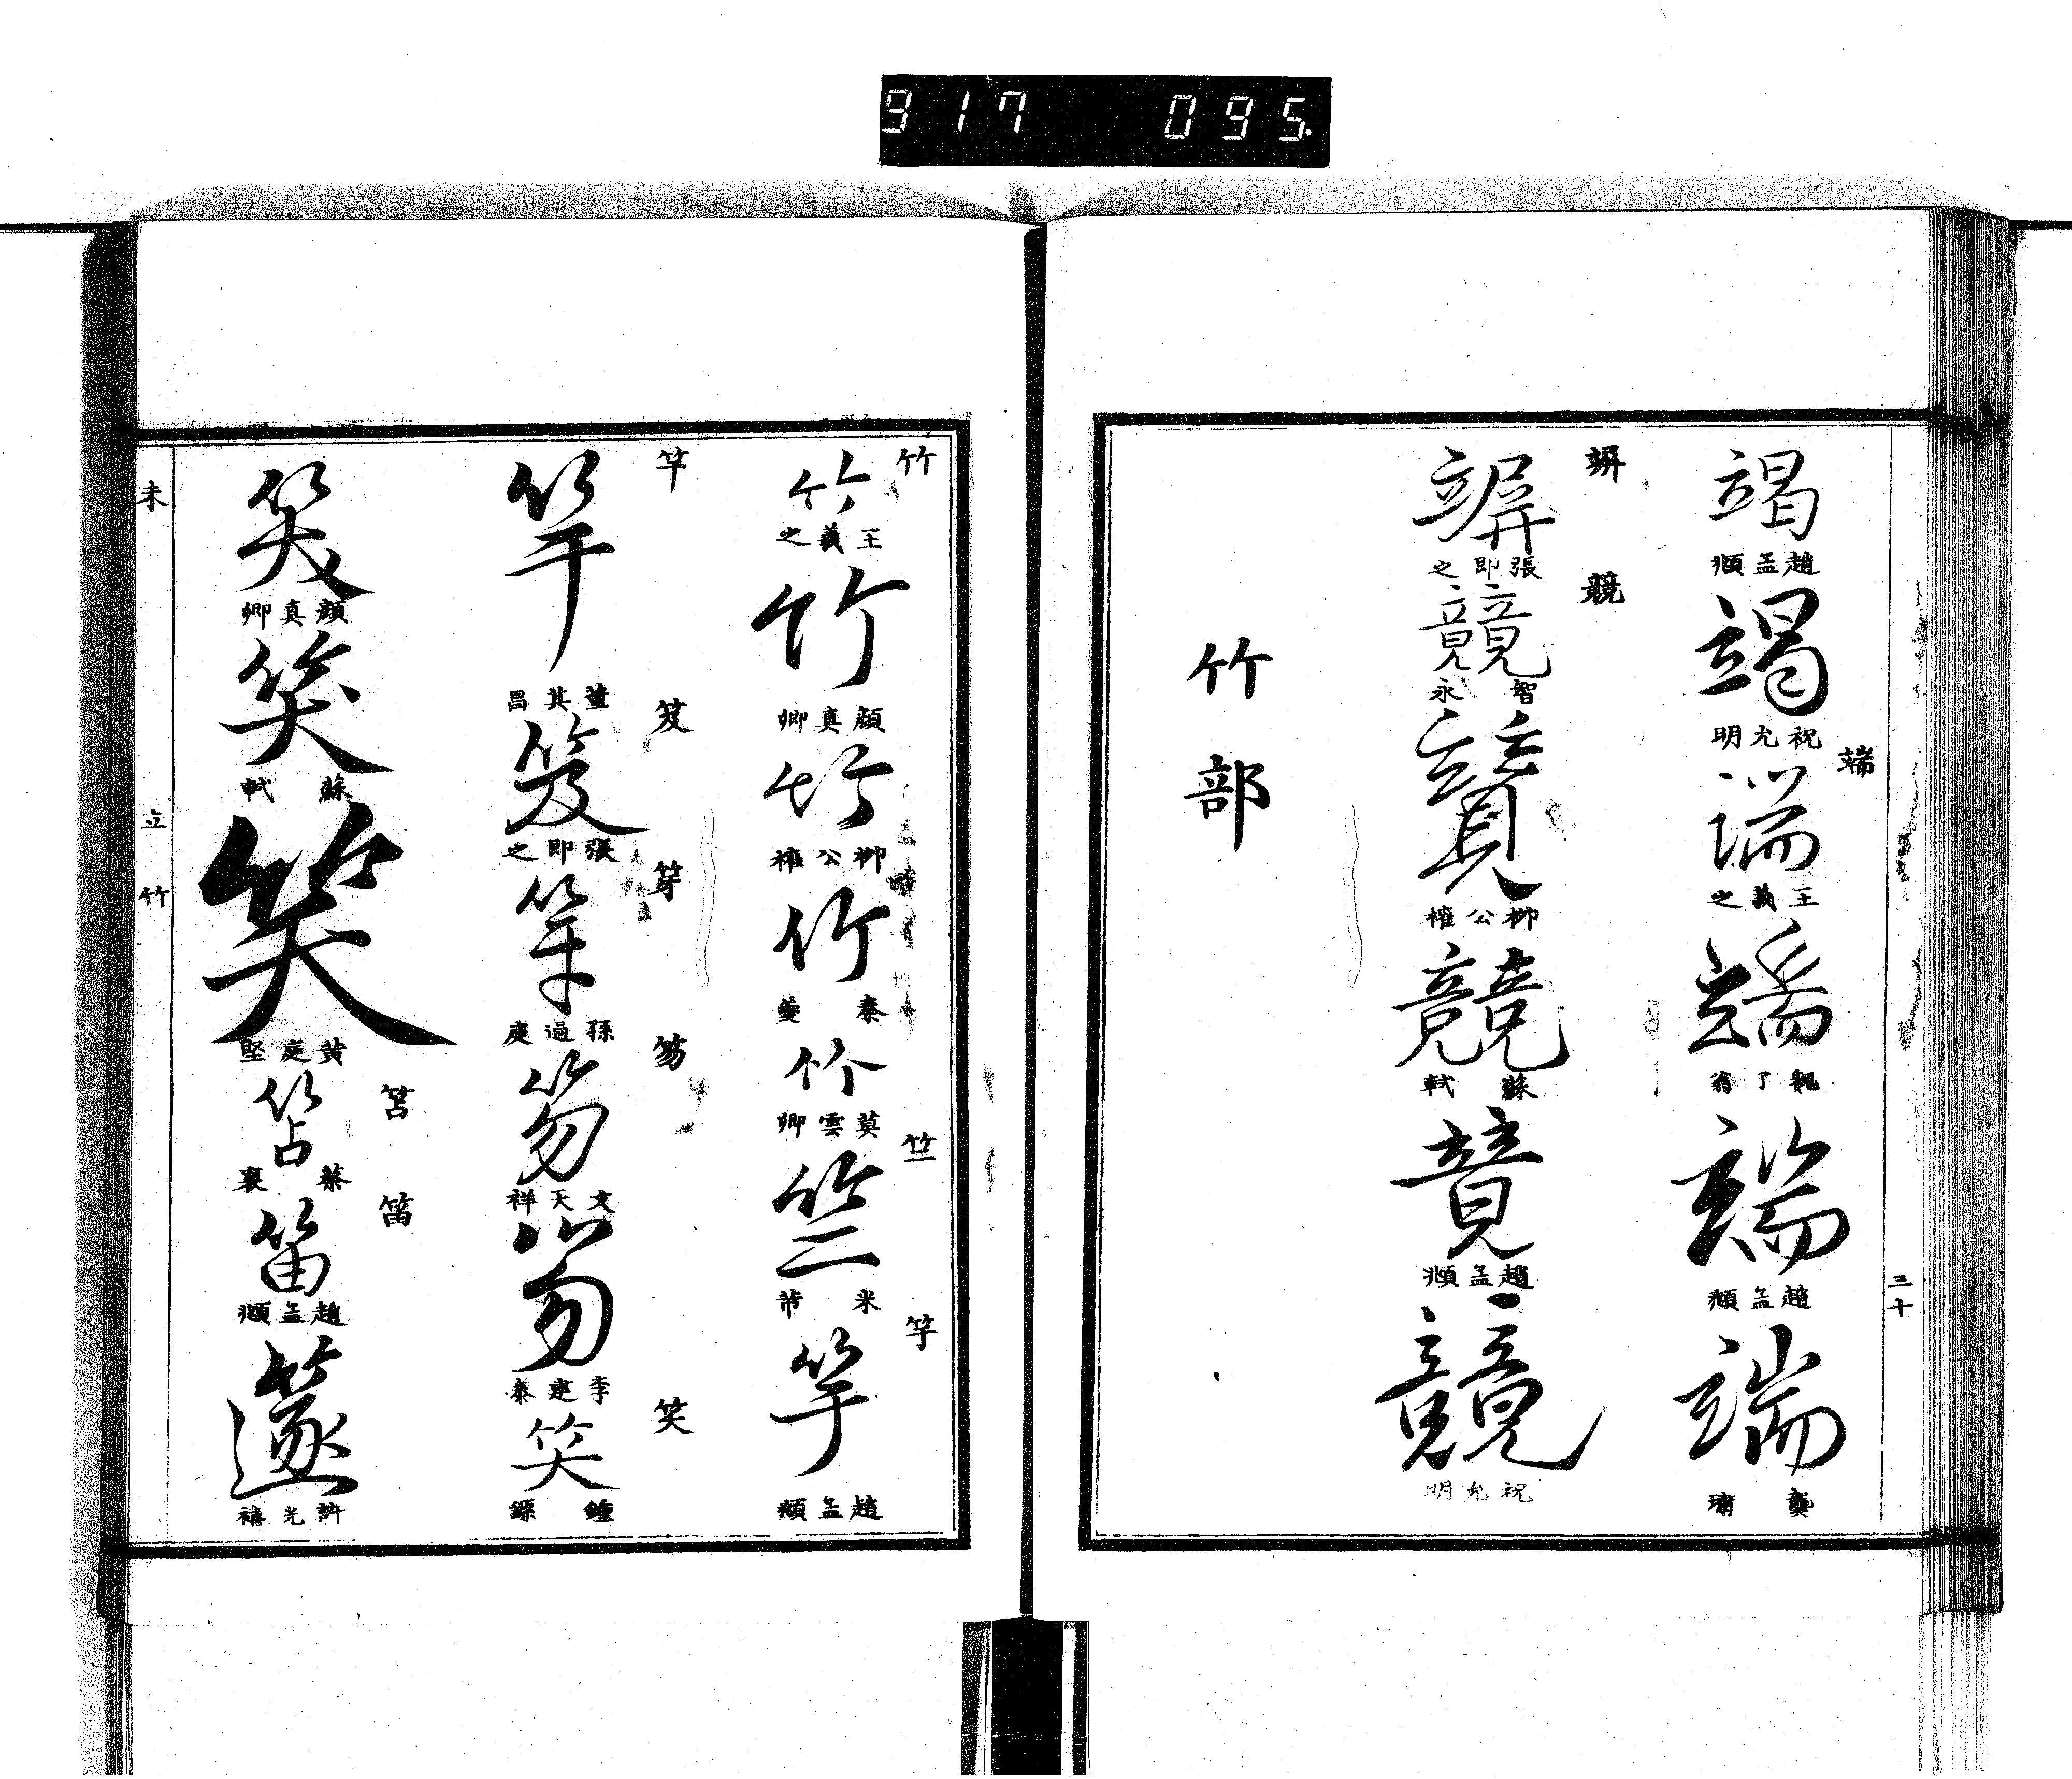 917 095.
竭
趙孟頫
竭
祝允明
端
端
王羲之
端
魏了翁
端
趙孟頫
端
龔璛
三十
竮
竮
張即之
競
競
智永
競
柳公權
競
蘇軾
競
趙孟頫
競
祝允明
竹部
竹
竹
王羲之
竹
顔真卿
竹
柳公權
竹
秦夔
竹
莫雲卿
竺
竺
米芾
竽
竽
趙孟頫
竿
竿
董其昌
笈
笈
張即之
笌
孫過庭
笏
笏
文天祥
笏
李建泰
笑
笑
鍾繇
笑
顔真卿
笑
蘇軾
笑
黄庭堅
笘
笘
蔡襄
笛
笛
趙孟頫
籧
許光禧
未
立竹